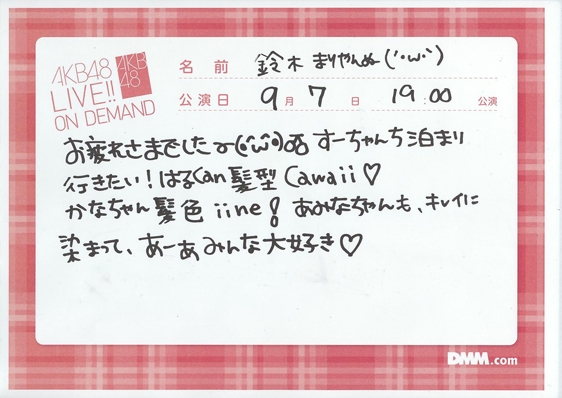 AKB48
LIVE!!
ON DEMAND
AKB
48
名前 鈴木まりやんぬ(´･ω･`)
公演日 9月7日 19:00 公演
お疲れさまでした
すーちゃんち泊まり
行きたい！はるcan髪型Cawaii♡
かなちゃん髪色iine！あみなちゃんも、キレイに
染まって、あーあみんな大好き♡
DMM.com